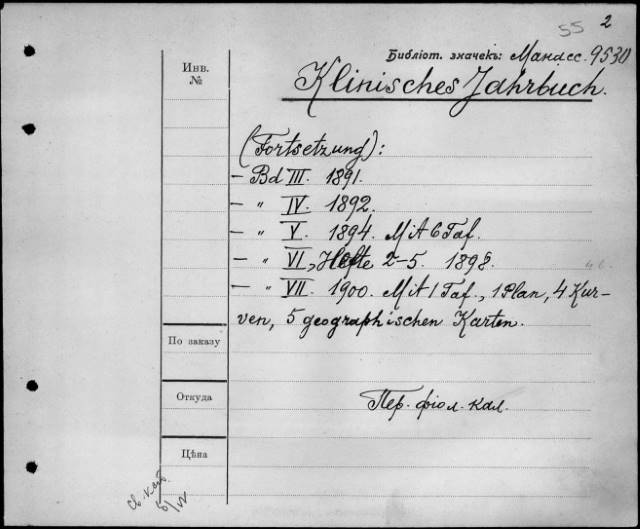 55 2
Библіот. значекъ: Мандес. 9530
Инв.
№
Klinisches Jahrbuch.
(Fortsetzung):
— Bd III. 1891.
— „ IV. 1892.
— „ V. 1894. Mit 6 Taf.
— „ VI, Hefte 2–5. 1898.
— „ VII. 1900. Mit 1 Taf., 1 Plan, 4 Kur-
ven, 5 geographischen Karten.
По заказу
Откуда
Пер. фіол. кал.
Цѣна